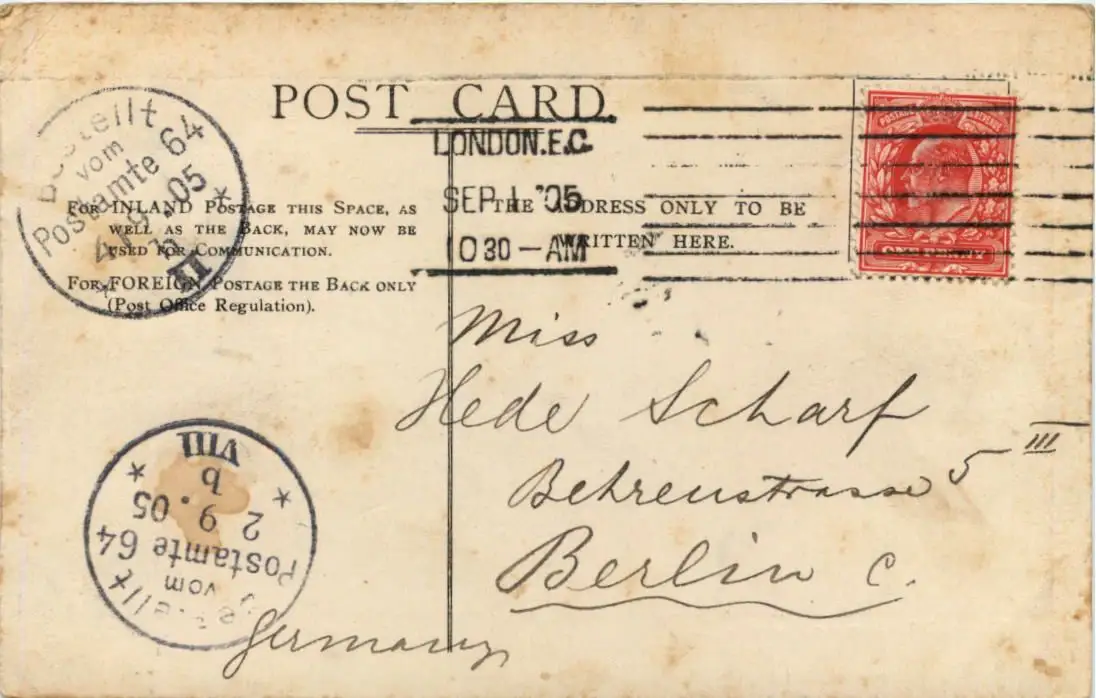 POST CARD.
LONDON.E.C.
SEP 1 '05
10 30 - AM
POSTAGE REVENUE
FOR INLAND POSTAGE THIS SPACE, AS
WELL AS THE BACK, MAY NOW BE
USED FOR COMMUNICATION.
FOR FOREIGN POSTAGE THE BACK ONLY
(Post Office Regulation).
THE ADDRESS ONLY TO BE
WRITTEN HERE.
Bestellt
vom
Postamte 64
9.05
II
Miss
Hede Scharf
Behrenstrasse 5 III
Berlin C.
Germany
Bestellt
vom
Postamte 64
2 9.05
b
VIII